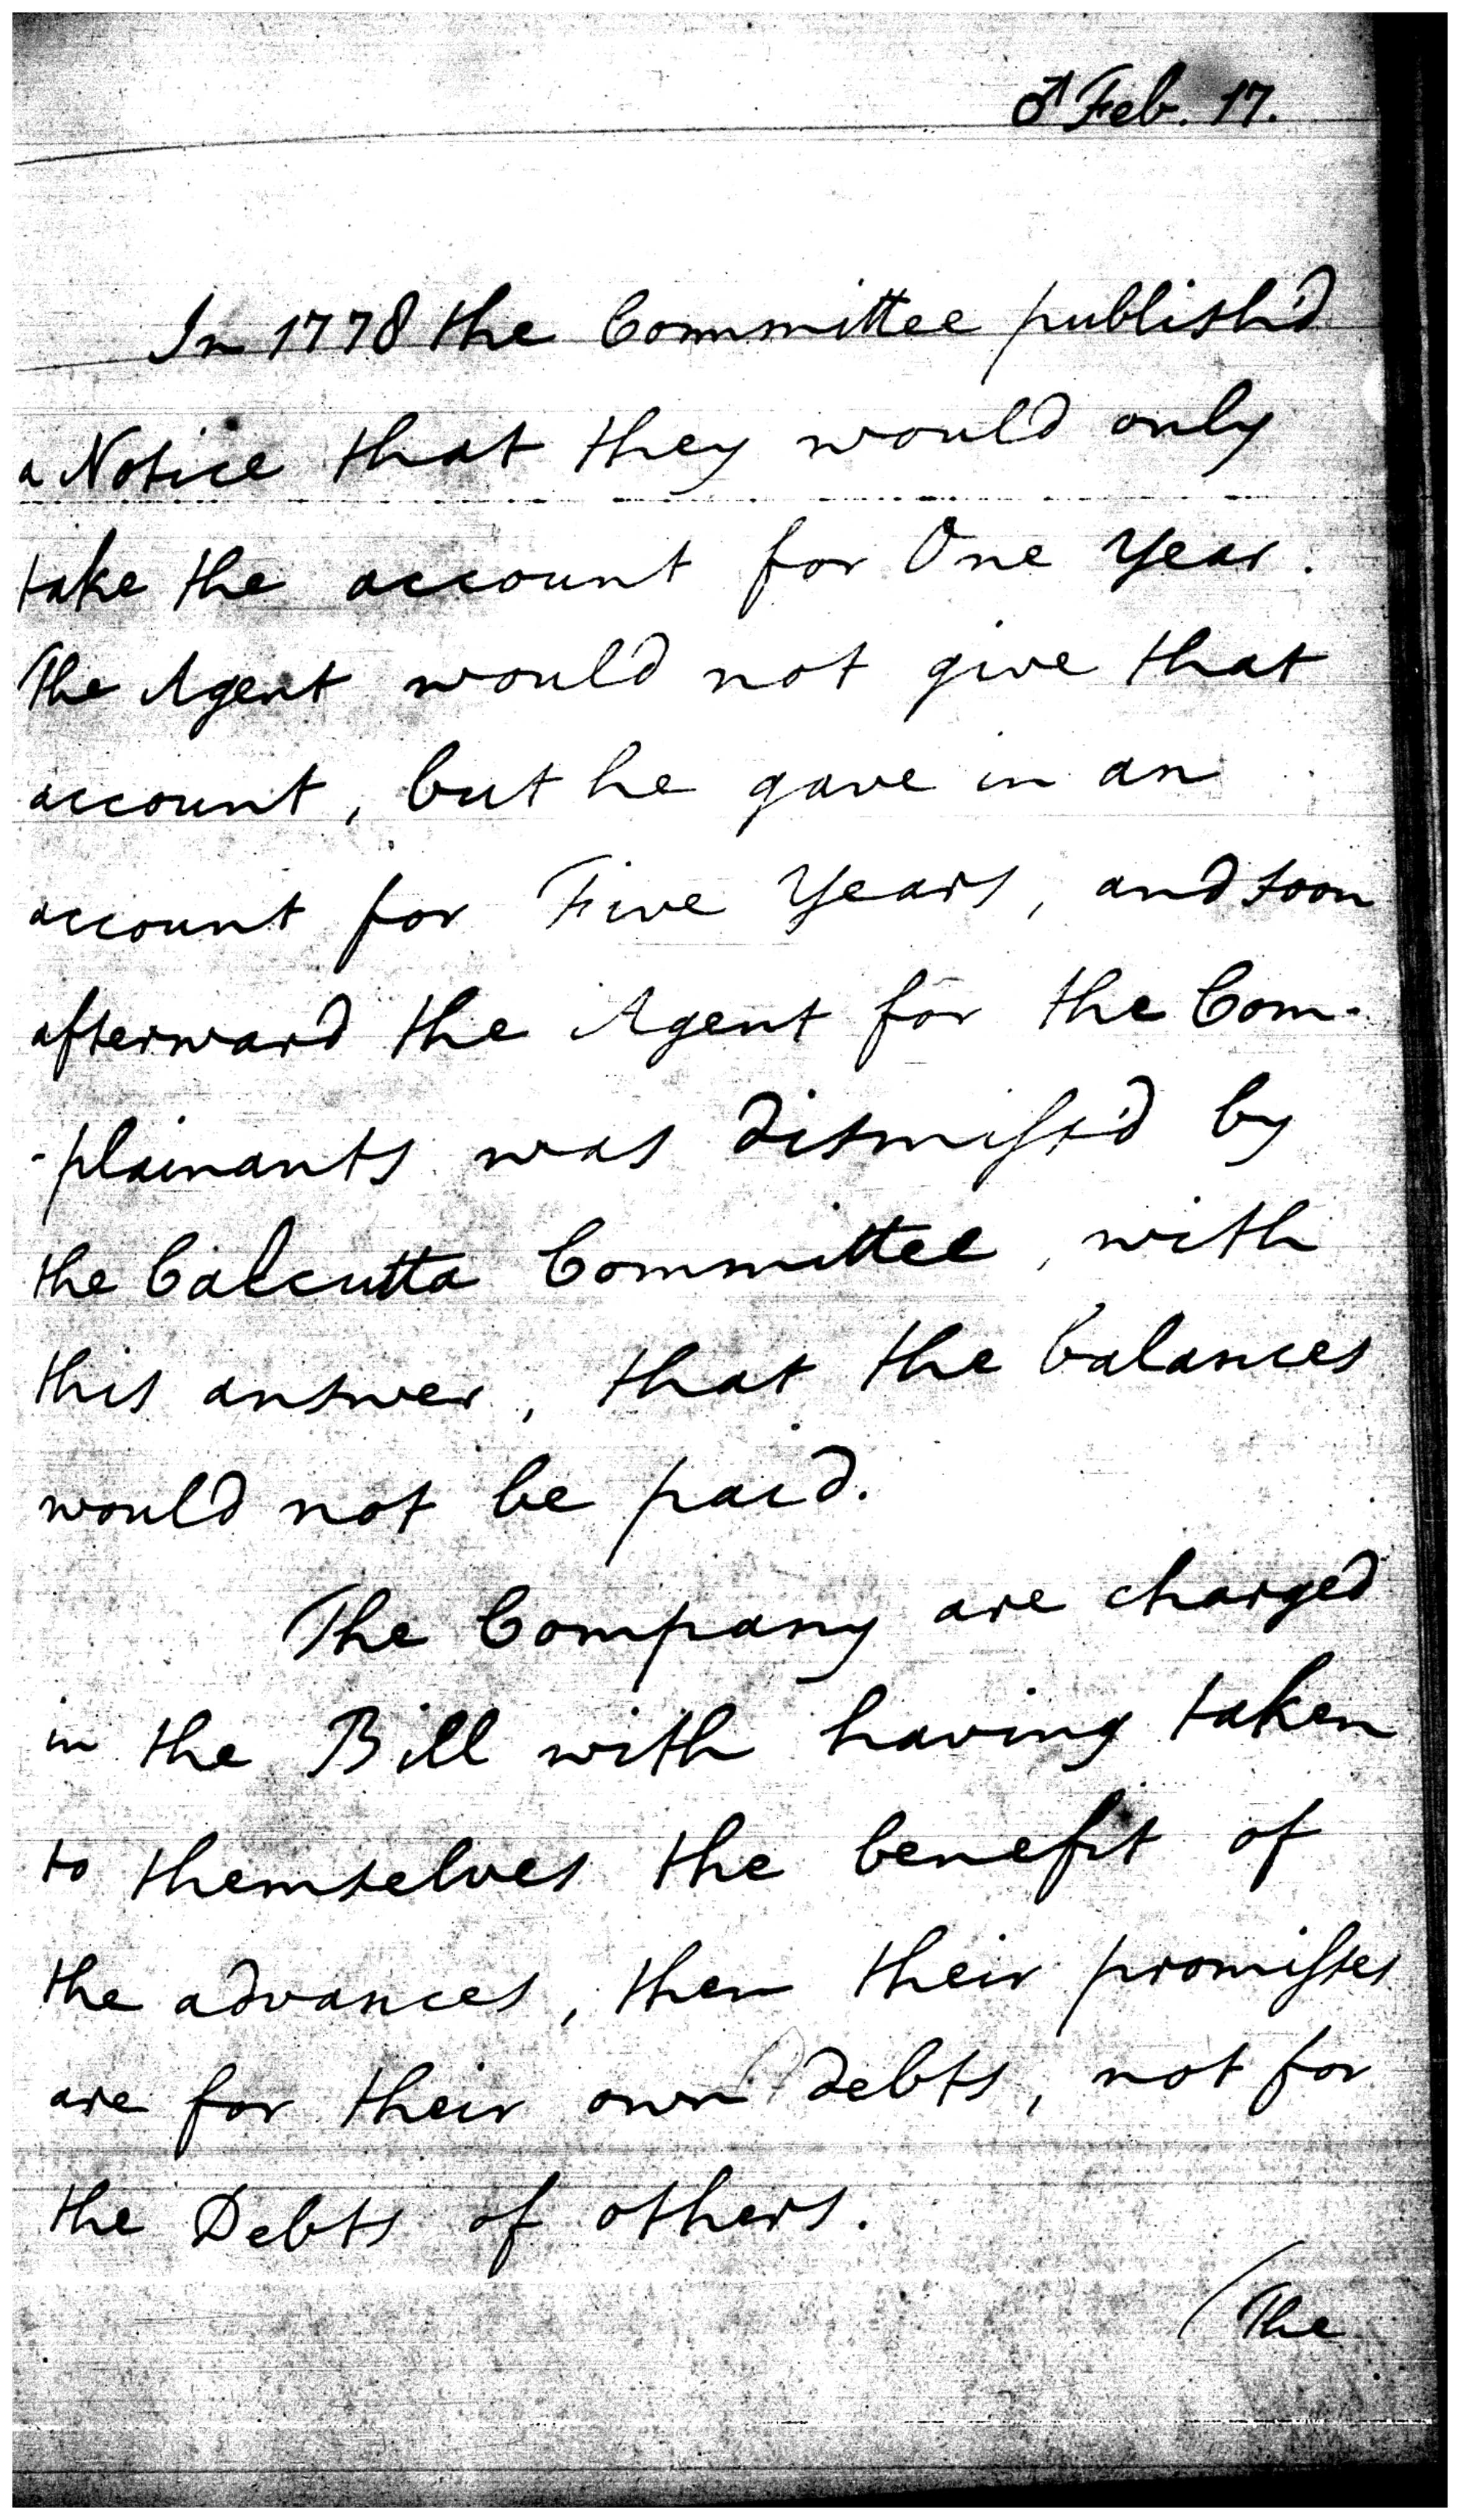 ♂ Feb. 17.
In 1778 the Committee publish'd
a Notice that they would only
take the account for One Year.
The Agent would not give that
account, but he gave in an
account for Five Years, and soon
afterward the Agent for the Com-
-plainants was dismiſs'd by
the Calcutta Committee, with
this answer, that the balances
would not be paid.
The Company are charged
in the Bill with having taken
to themselves the benefit of
the advances, then their promiſses
are for their own debts, not for
the Debts of others.
(The